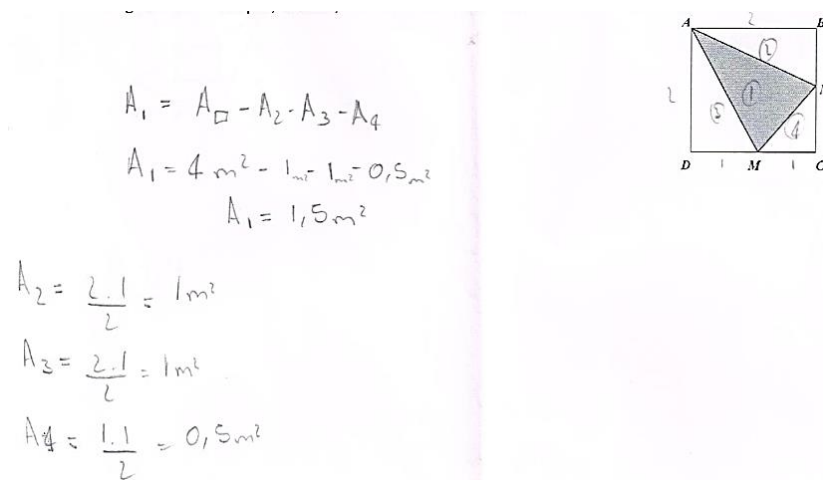 A₁ = A□ - A₂ - A₃ - A₄
A₁ = 4 m² - 1m² - 1m² - 0,5m²
A₁ = 1,5m²
A₂ = 2.1/2 = 1m²
A₃ = 2.1/2 = 1m²
A4 = 1.1/2 = 0,5m²
A 2
②
2 ① N
③ ④
D 1 M 1 C